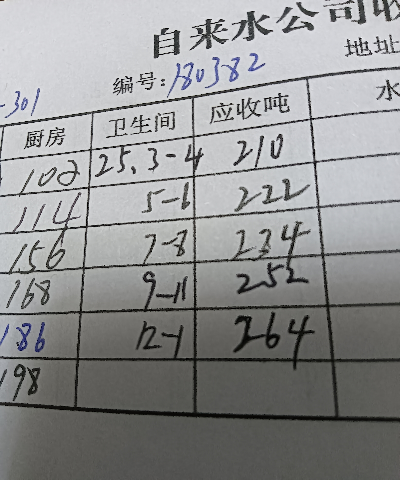 自来水公司收
-301 编号:180382 地址
厨房 卫生间 应收吨 水
102 25.3-4 210
114 5-6 222
156 7-8 234
168 9-11 252
186 12-1 264
198